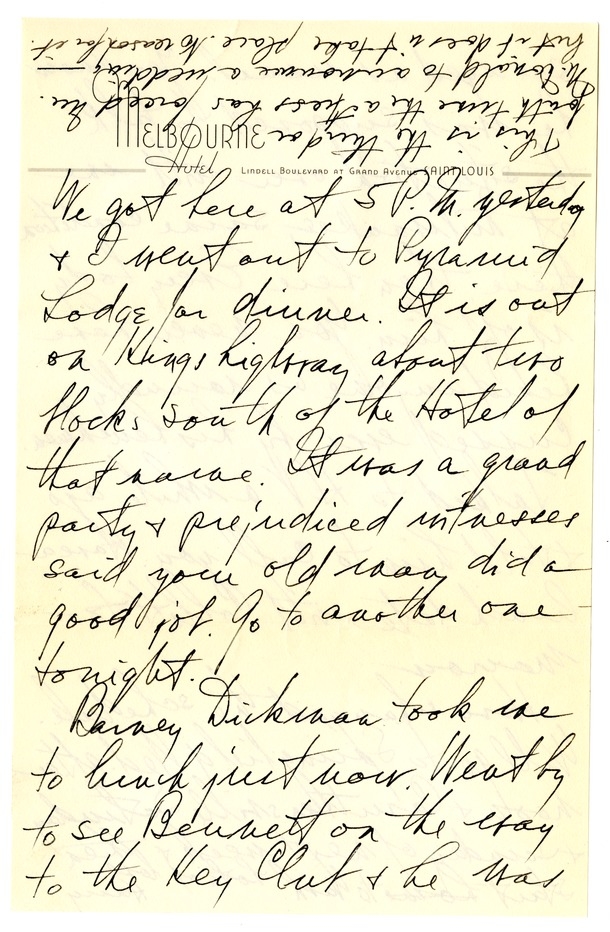 This is the third or
fourth time the actress has forced
McDonald to announce a wedding
but it doesn't take place. No reason for it.
MELBOURNE
Hotel
LINDELL BOULEVARD AT GRAND AVENUE SAINT LOUIS
We got here at 5 P.M. yesterday
& I went out to Pyramid
Lodge for dinner. It is out
on Kingshighway about two
blocks south of the Hotel of
that name. It was a grand
party & prejudiced witnesses
said your old man did a
good job. Go to another one
tonight.
Barney Dickman took me
to lunch just now. Went by
to see Bennett on the way
to the Key Club & he was